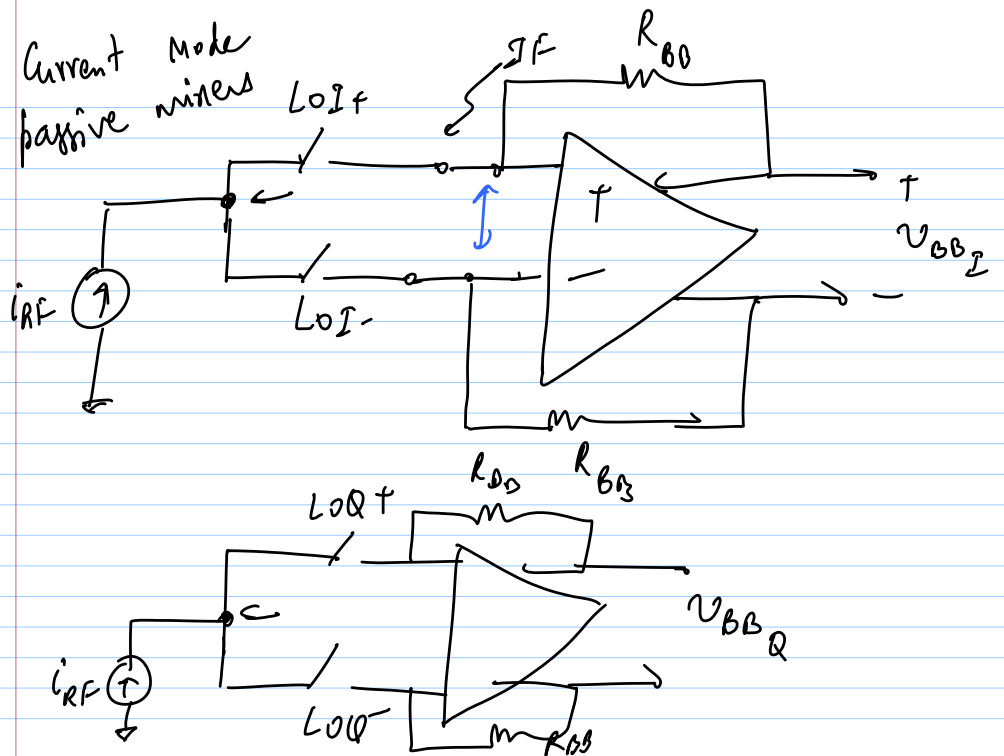 Current Mode
passive mixers
R_BB
IF
LOI+
+
-
i_RF
LOI-
+
V_BB_I
-
R_BB
R_BB
LOQ+
V_BB_Q
i_RF
LOQ-
R_BB